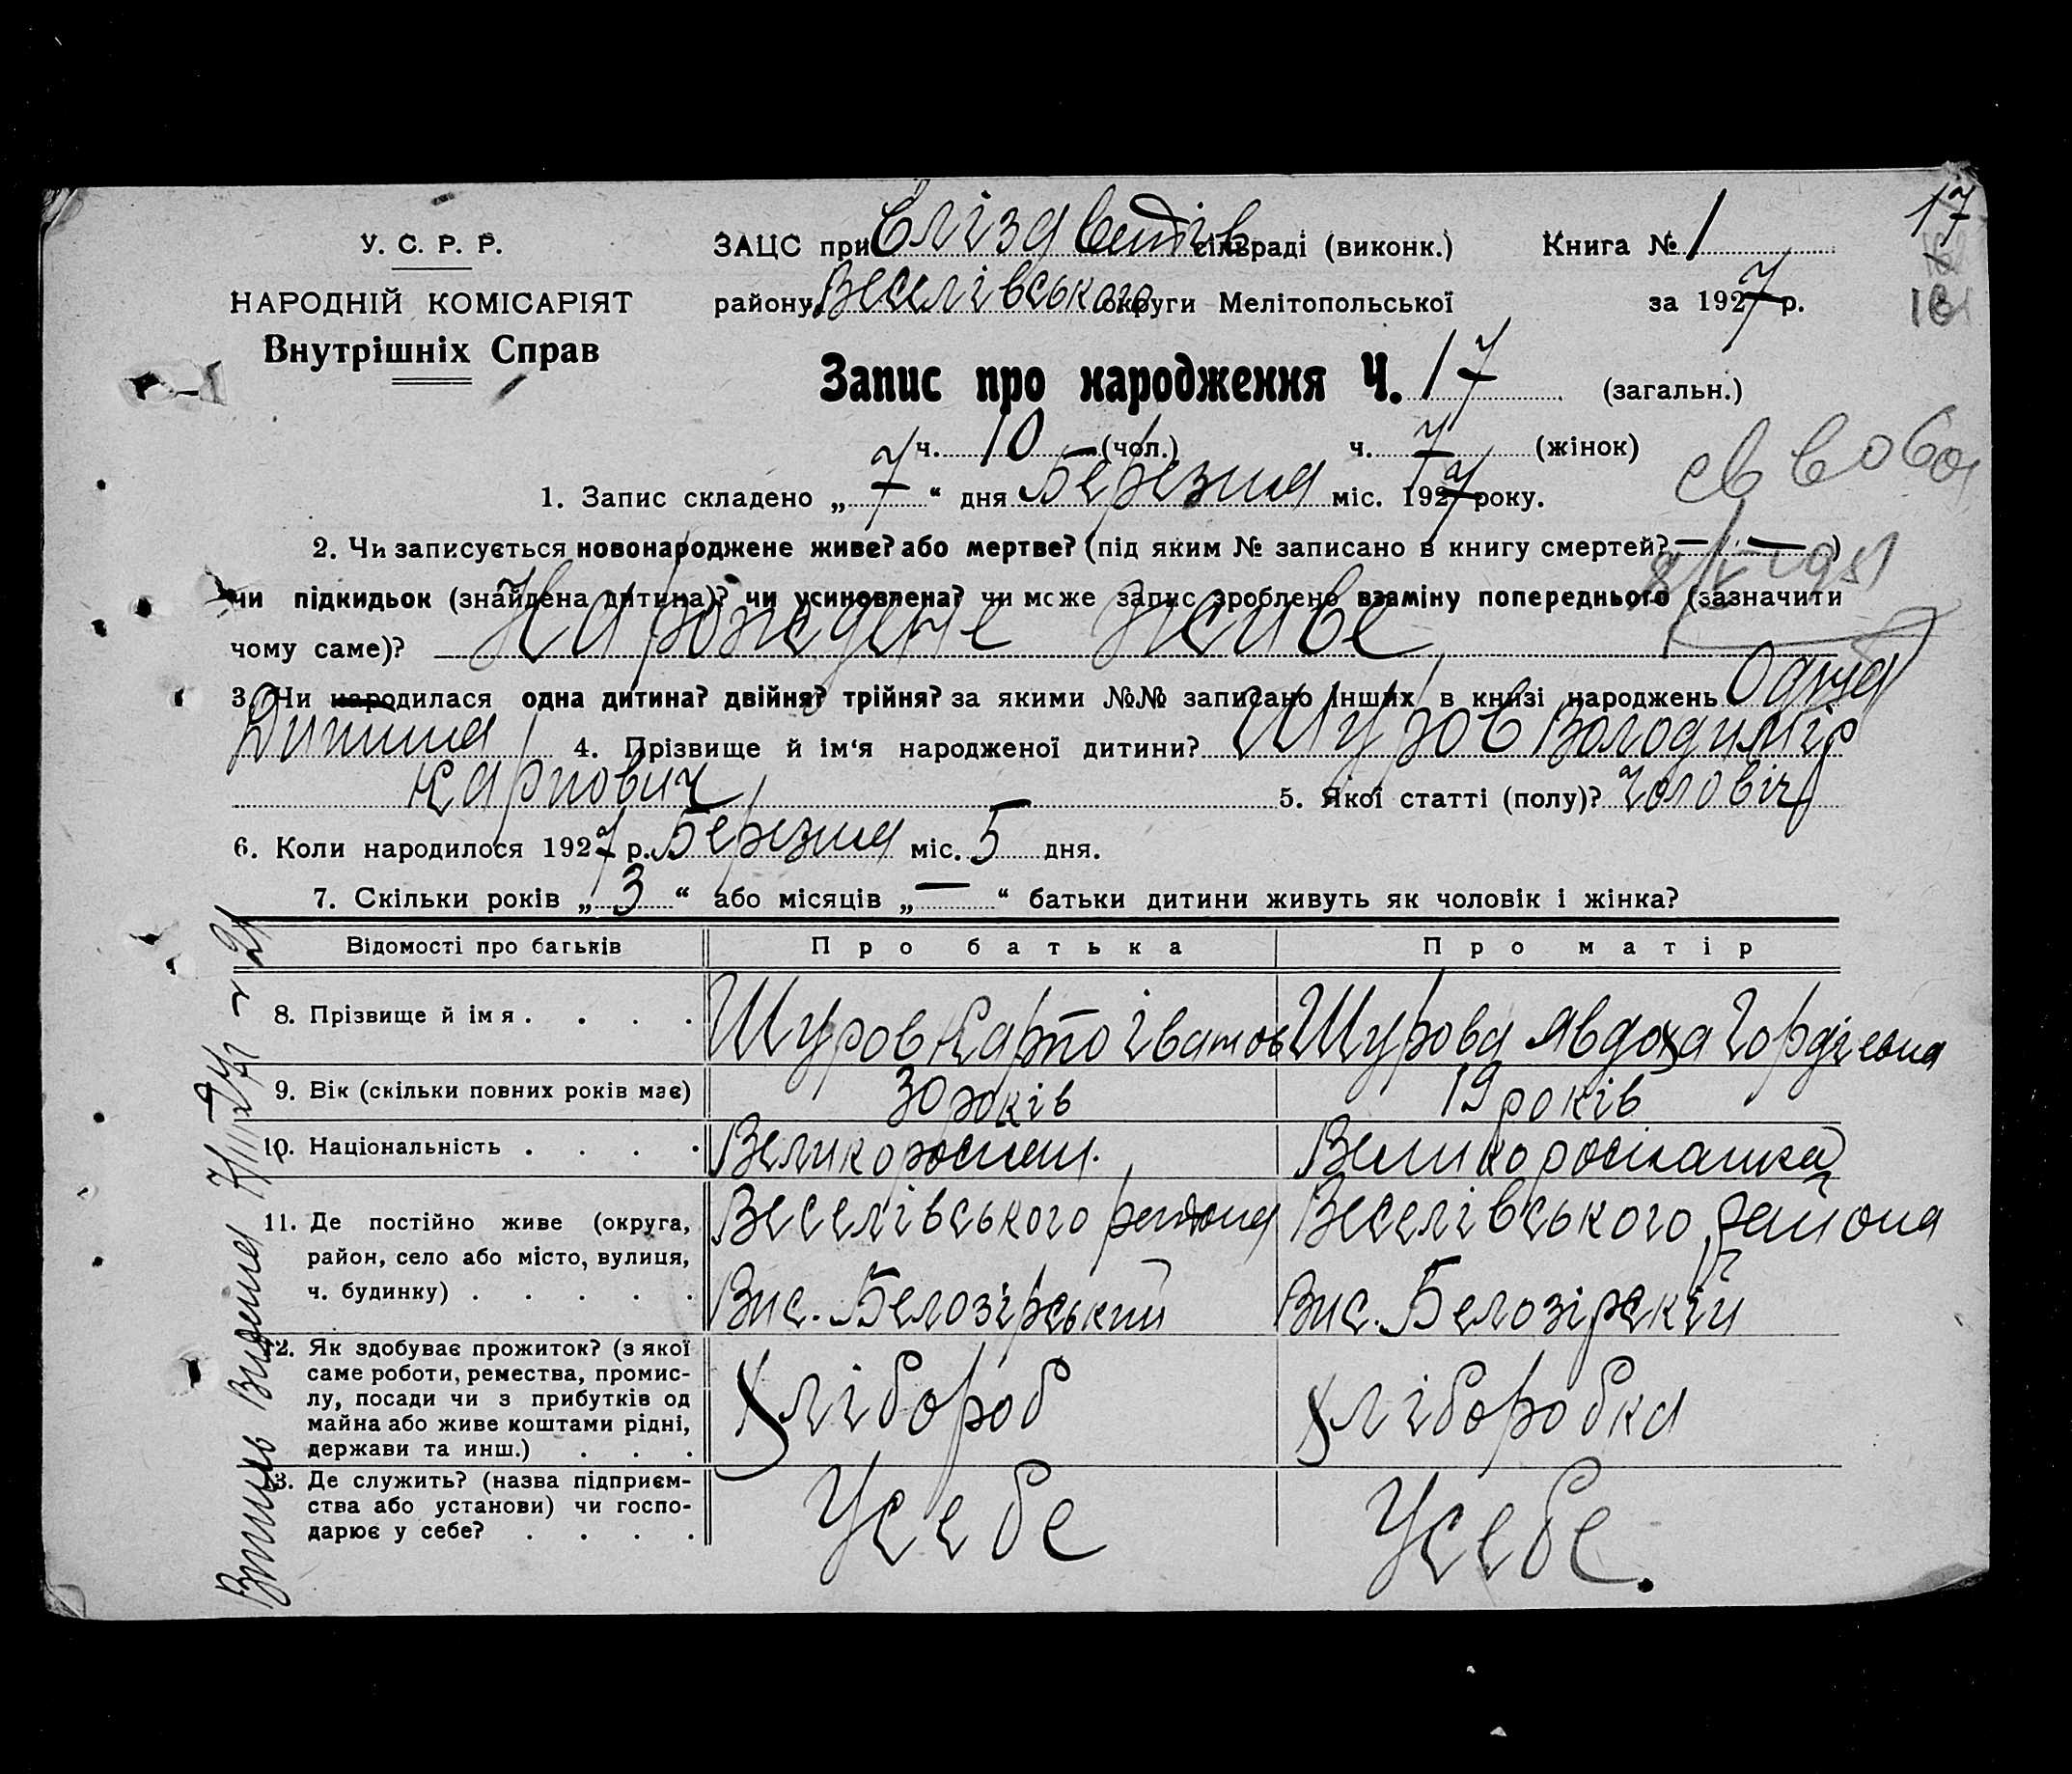 17
У. С. Р. Р.
НАРОДНІЙ КОМІСАРІЯТ
Внутрішніх Справ
ЗАЦС при Єлізаветів сільраді (виконк.) Книга № 1
району Веселівського округи Мелітопольської за 1927 р.
Запис про народження Ч. 17 (загальн.)
ч. 10 (чол.) ч. 7 (жінок)
1. Запис складено „ 7 “ дня Березня міс. 1927 року.
2. Чи записується новонароджене живе? або мертве? (під яким № записано в книгу смертей? — — )
чи підкидьок (знайдена дитина)? чи усиновлена? чи може запис зроблено взаміну попереднього (зазначити
чому саме)? Народжене живе
3. Чи народилася одна дитина? двійня? трійня? за якими №№ записано інших в книзі народжень Одна
Дитина 4. Прізвище й ім‘я народженої дитини? Шуров Володимір
Карпович 5. Якої статті (полу)? чоловіч
6. Коли народилося 1927 р. Березня міс. 5 дня.
7. Скільки років „ 3 “ або місяців „ — “ батьки дитини живуть як чоловік і жінка?
Відомості про батьків Про батька Про матір
8. Прізвище й імя . . . . Шуров Карпо Іванов Шурова Явдоха Гордіевна
9. Вік (скільки повних років має) 30 років 19 років
10. Національність . . . . Великоросиян. Великоросіянка
11. Де постійно живе (округа, Веселівського района Веселівського района
район, село або місто, вулиця,
ч. будинку) . . . . . Вис. Белозірський Вис. Белозірскій
12. Як здобуває прожиток? (з якої
саме роботи, ремества, промис-
лу, посади чи з прибутків од Хлібороб Хліборобка
майна або живе коштами рідні,
держави та инш.) . . .
13. Де служить? (назва підприєм-
ства або установи) чи госпо- У себе У себе.
дарює у себе? . . . .